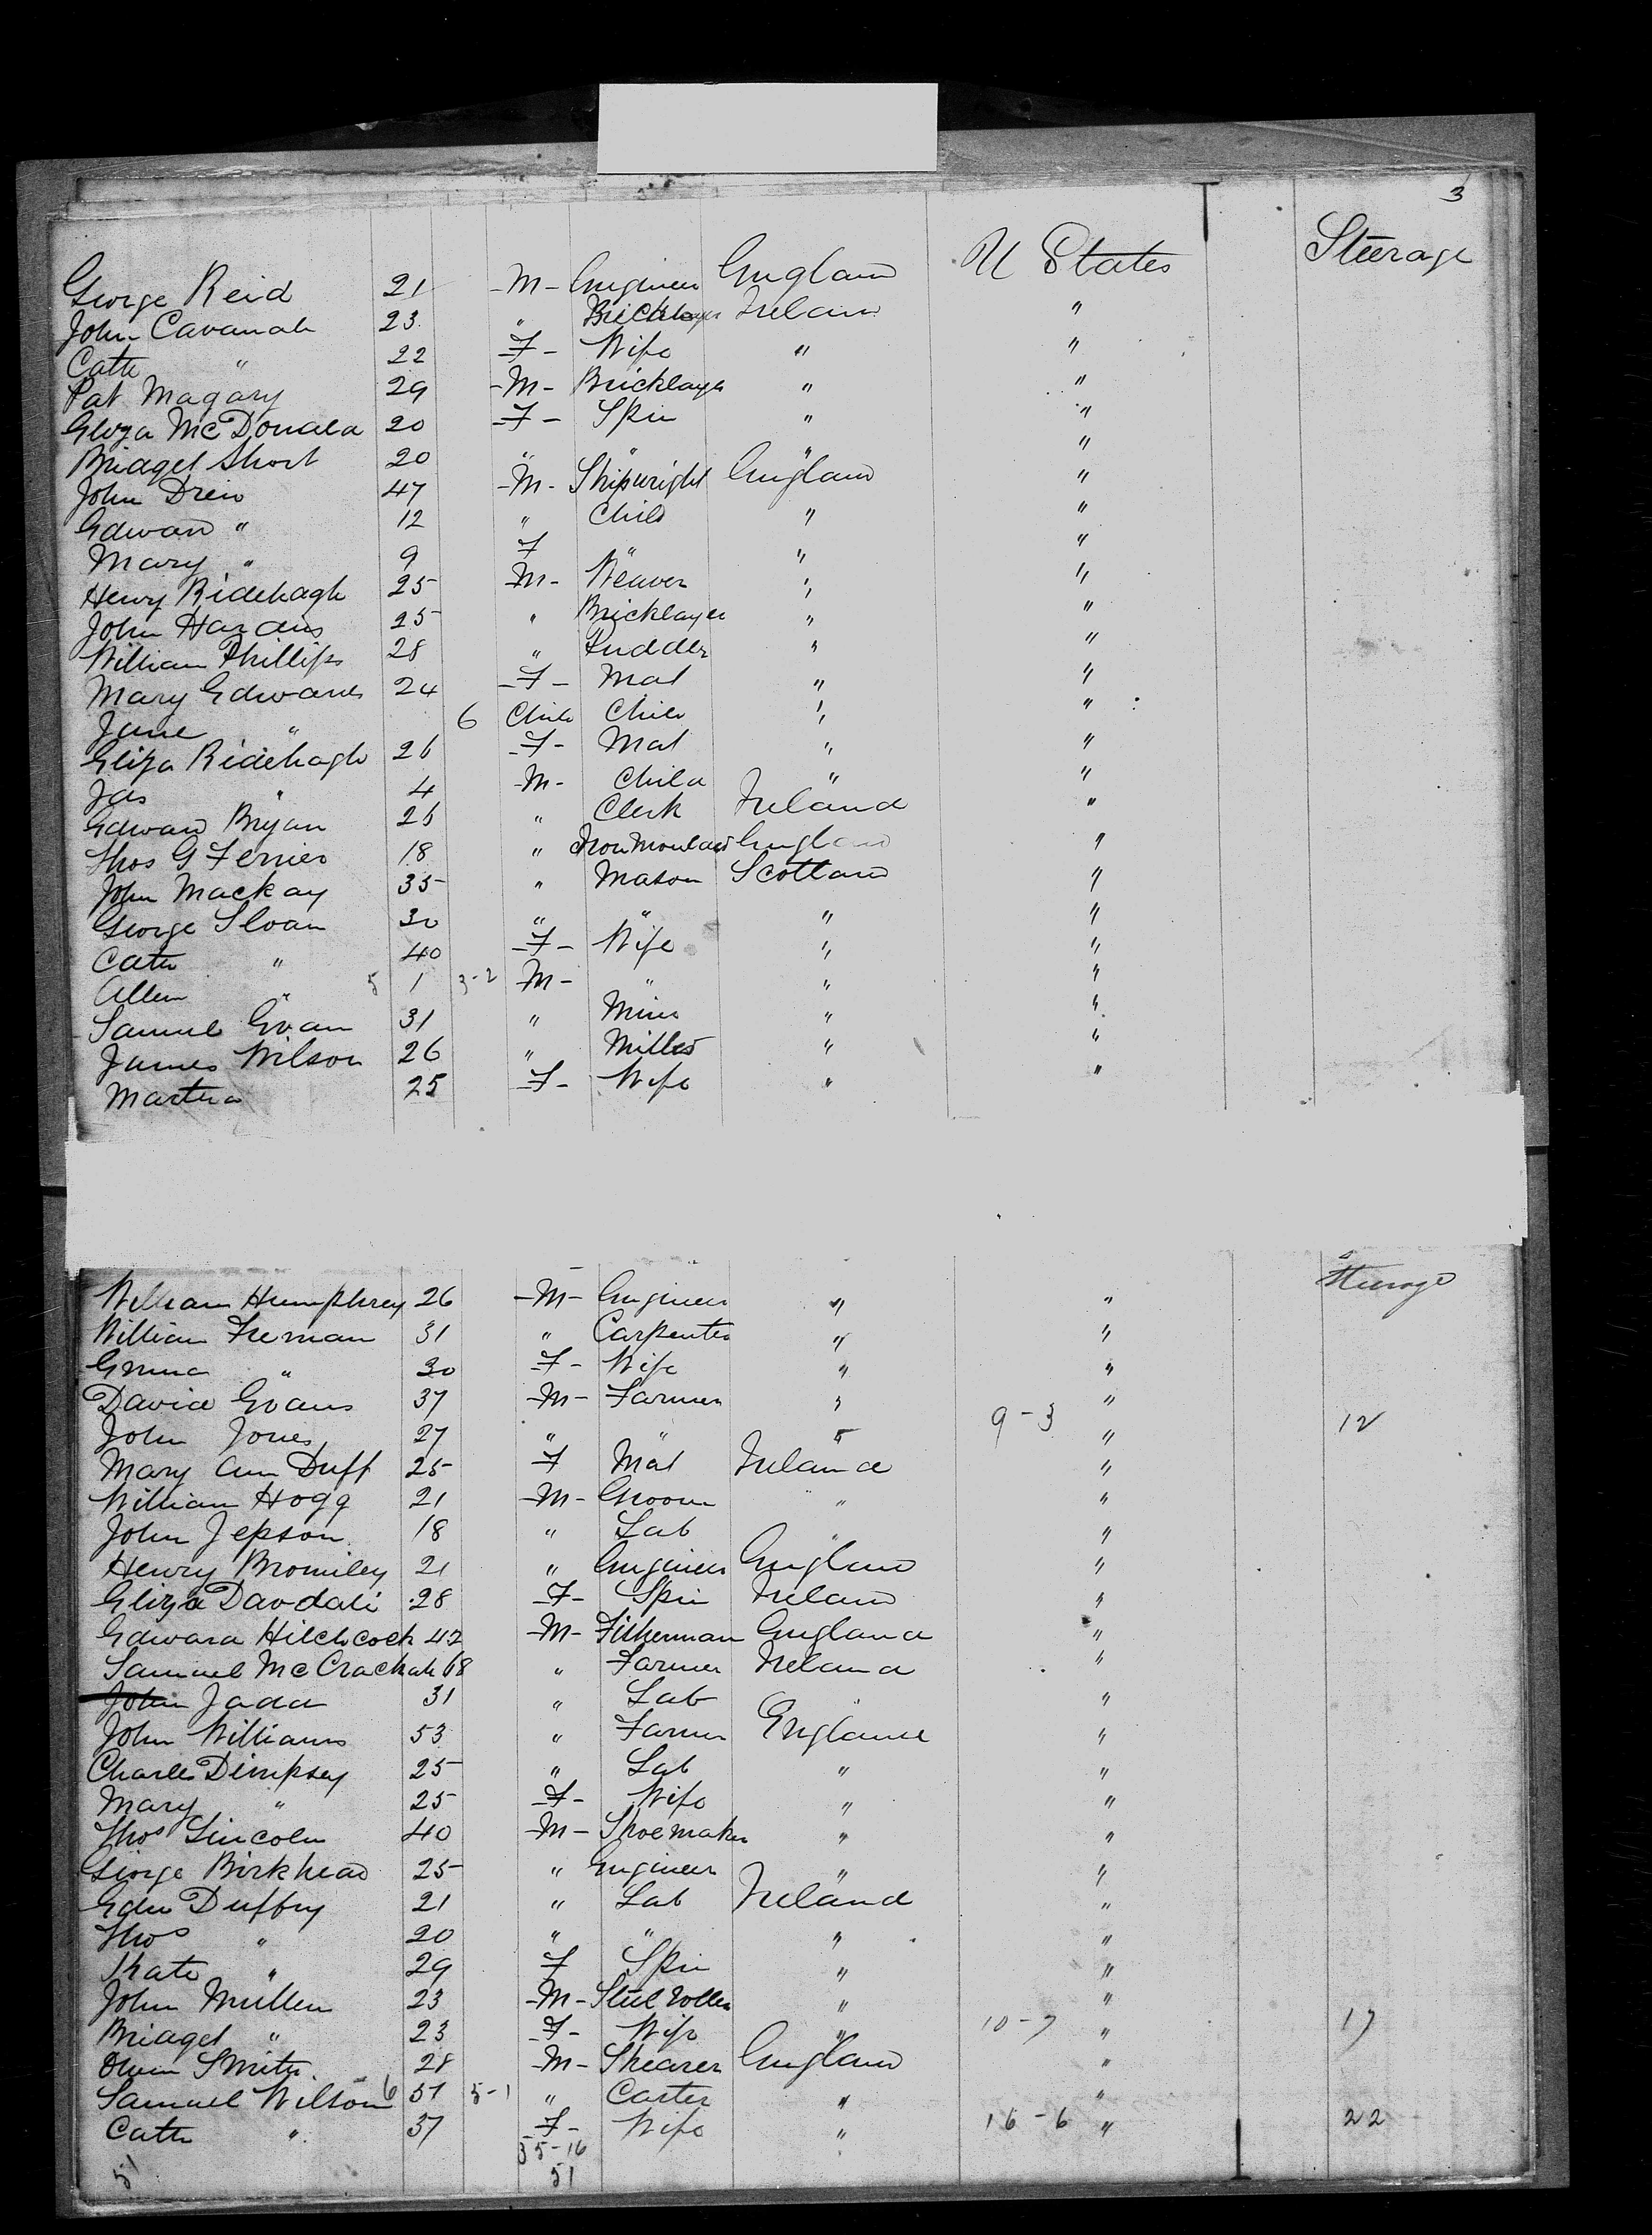 3
George Reid 21 M - Engineer England U States Steerage
John Cavanah 23 " Bricklayer Irelan "
Cath " 22 F - Wife " "
Pat Magary 29 - M - Bricklayer " "
Eliza McDonald 20 - F - Spin " "
Bridget Short 20 " " " "
John Drew 47 - M - Shipwright England "
Edward " 12 " Child " "
Mary " 9 F " " "
Henry Ridehagh 25 M - Weaver " "
John Hardis 25 " Bricklayer " "
William Phillips 28 " Puddler " "
Mary Edwards 24 - F - Mat " "
Jane " 6 Child Child " "
Eliza Ridehagh 26 - F - Mat " "
Jas " 4 M - Child " "
Edward Bryan 26 " Clerk Ireland "
Thos G Ferrier 18 " Iron Moulder England "
John Mackay 35 " Mason Scotland "
George Sloan 30 " " " "
Cath " 40 - F - Wife " "
Allen " 5 1 3-2 M - " " "
Samuel Evan 31 " Miner " "
James Wilson 26 " Miller " "
Martha 25 - F - Wife " "
William Humphrey 26 - M - Engineer " " Steerage
William Freeman 31 " Carpenter " "
Emma " 30 - F - Wife " "
David Evans 37 - M - Farmer " "
John Jones 27 " " " 9-3 " 12
Mary Ann Duff 25 F Mat Ireland "
William Hogg 21 - M - Groom " "
John Jepson 18 " Lab " "
Henry Bromiley 21 " Engineer England "
Eliza Davdali 28 F - Spin Ireland "
Edward Hitchcock 42 - M - Fisherman England "
Samuel McCrackah 18 " Farmer Ireland "
John Jadd 31 " Lab " "
John Williams 53 " Farmer England "
Charles Dempsey 25 " Lab " "
Mary " 25 - F - Wife " "
Thos Lincoln 40 - M - Shoemaker " "
George Birkhead 25 " Engineer " "
Edw Duffry 21 " Lab Ireland "
Thos " 20 " " " "
Kate " 29 F Spin " "
John Mullen 23 - M - Steel roller " "
Bridget " 23 - F - Wife " 10-7 " 17
Owen Smith 28 - M - Shearer England "
Samuel Wilson 6 51 5-1 " Carter " "
Cath " 37 - F - Wife " 16-6 " 22
35-16
51 51